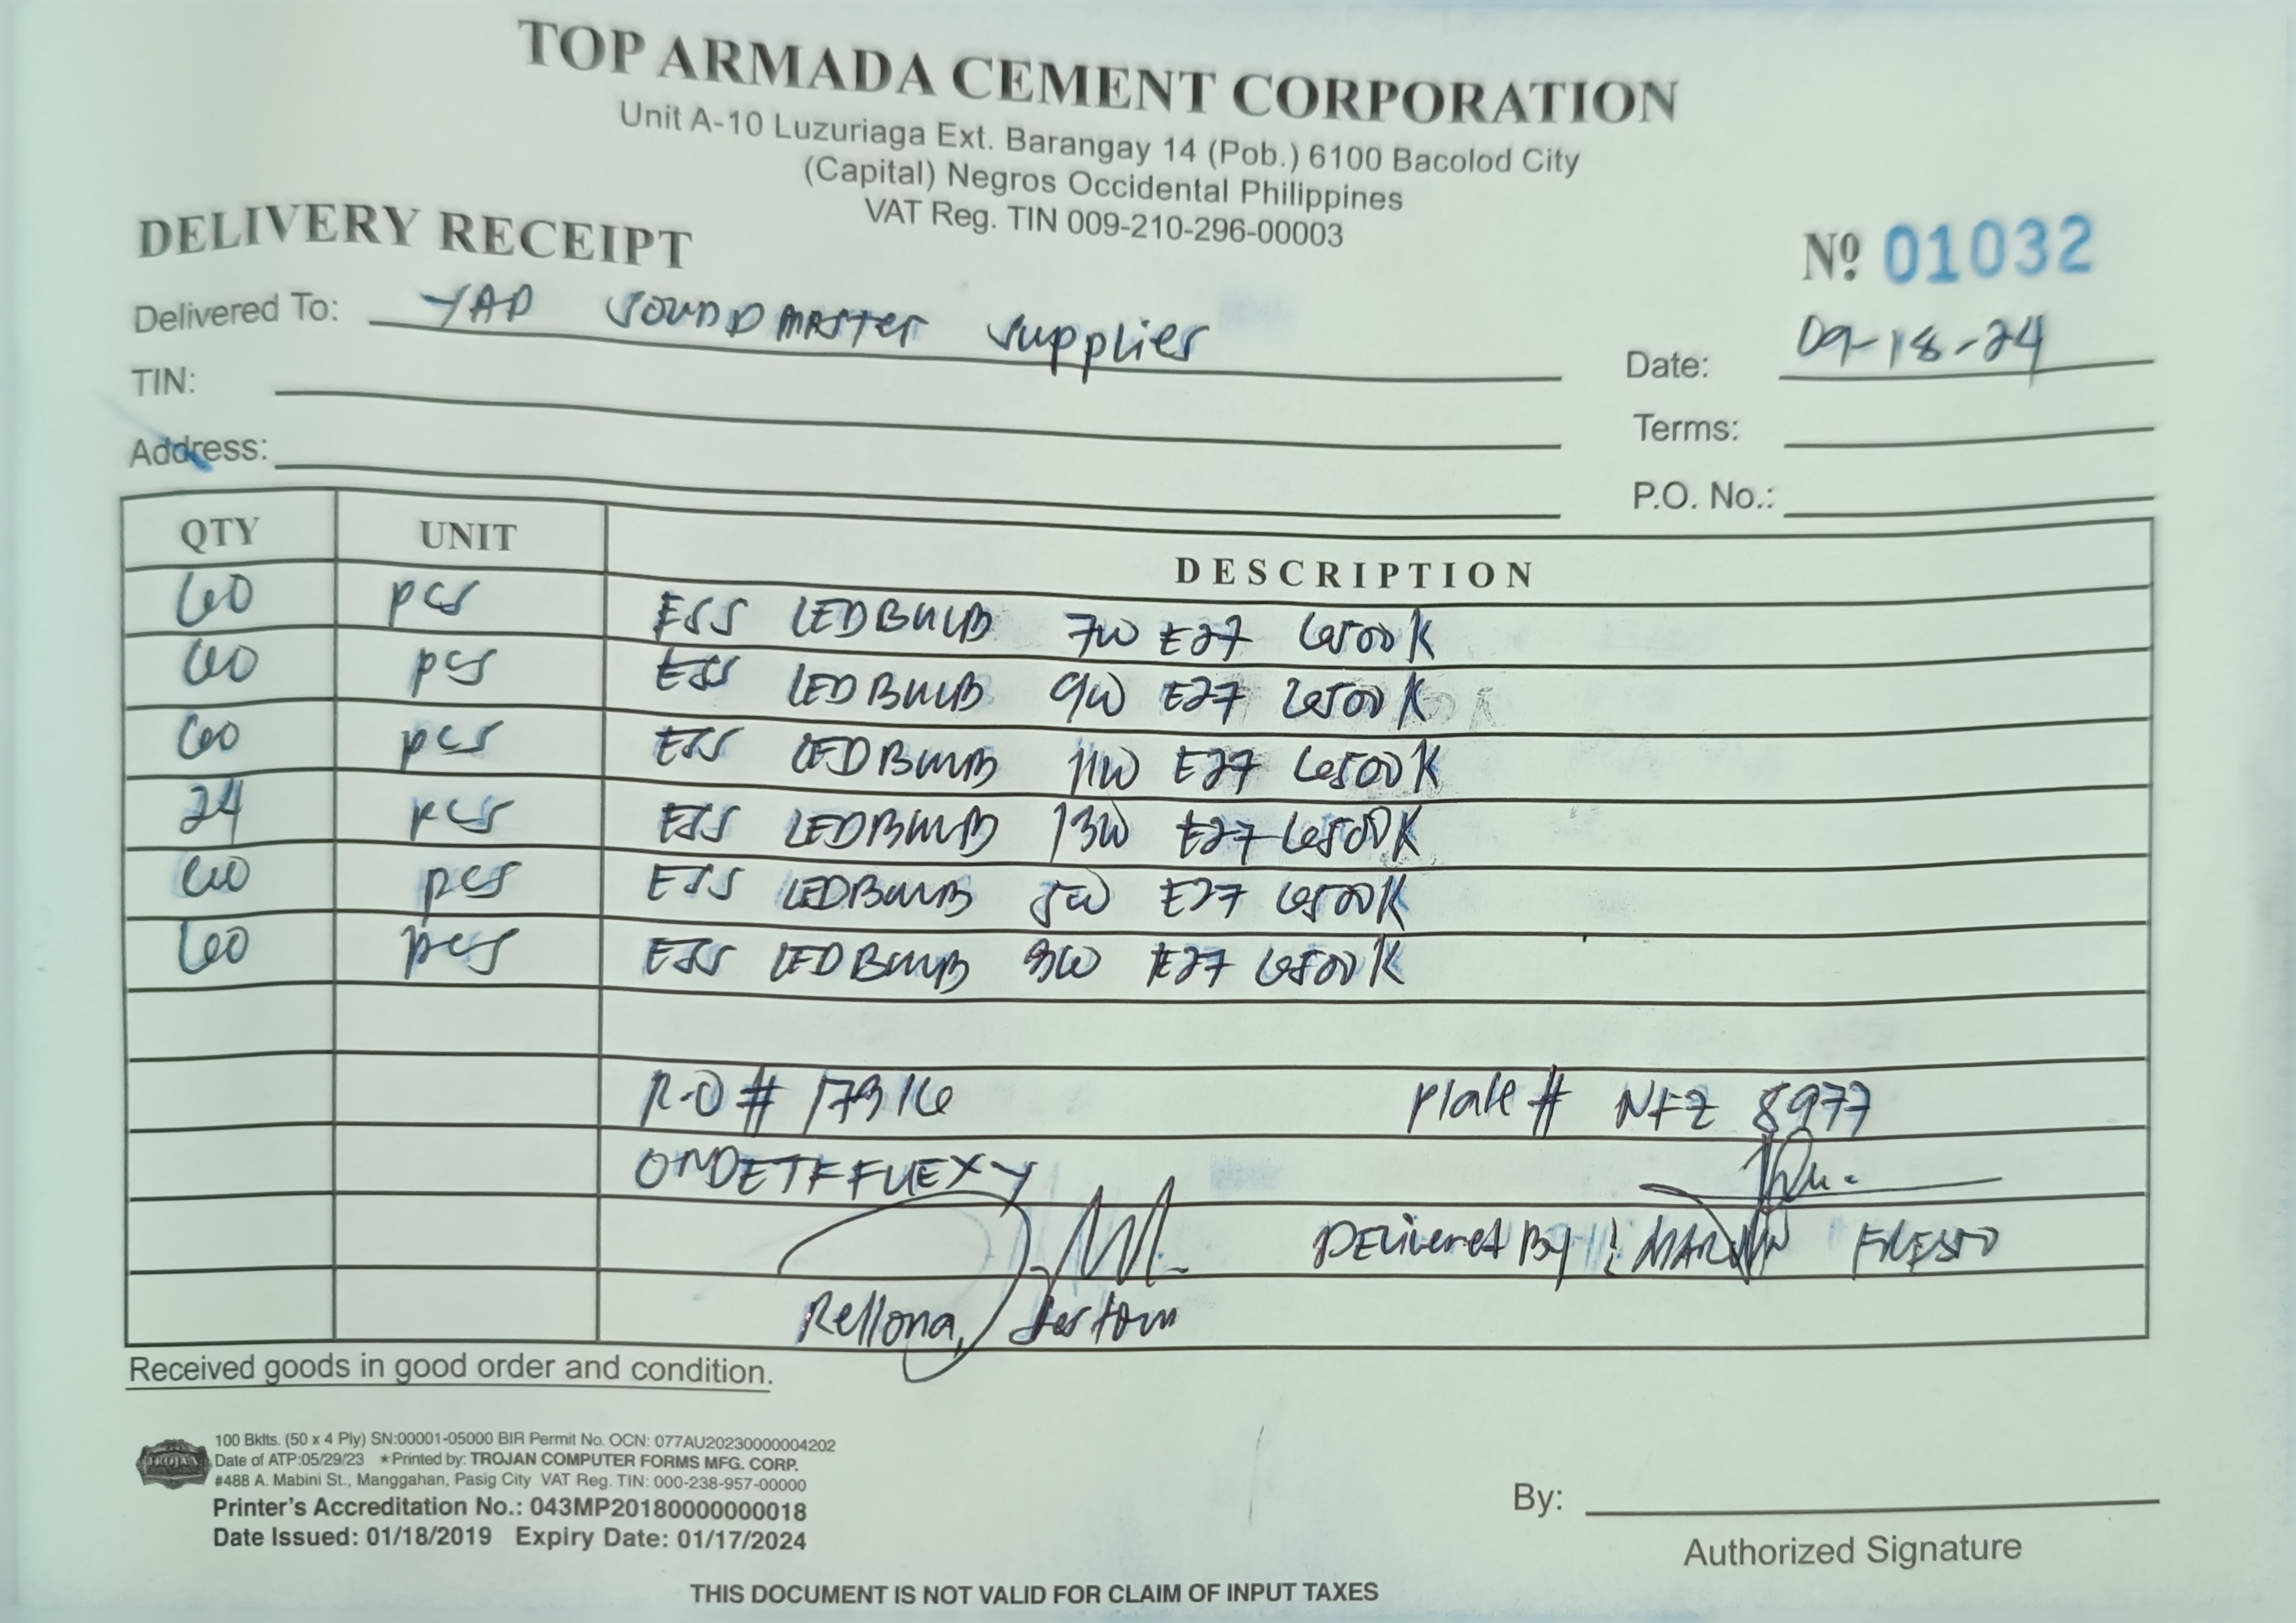 TOP ARMADA CEMENT CORPORATION
Unit A-10 Luzuriaga Ext. Barangay 14 (Pob.) 6100 Bacolod City
(Capital) Negros Occidental Philippines
VAT Reg. TIN 009-210-296-00003
DELIVERY RECEIPT
Nº 01032
Delivered To: YAP SOUNDMASTER supplier
Date: 09-18-24
TIN:
Terms:
Address:
P.O. No.:
QTY UNIT DESCRIPTION
60 pcs ESS LEDBULB 7W E27 6500K
60 pcs ESS LEDBULB 9W E27 6500K
60 pcs ESS LEDBULB 11W E27 6500K
24 pcs ESS LEDBULB 13W E27 6500K
60 pcs ESS LEDBULB 5W E27 6500K
60 pcs ESS LEDBULB 3W E27 6500K
# 17916 Plate # NFZ 8977
ONDETFFUEXY
Delivered By: MARVIN
Rellona,
Received goods in good order and condition.
TROJAN
100 Bklts. (50 x 4 Ply) SN:00001-05000 BIR Permit No. OCN: 077AU20230000004202
Date of ATP:05/29/23 ★Printed by: TROJAN COMPUTER FORMS MFG. CORP.
#488 A. Mabini St., Manggahan, Pasig City VAT Reg. TIN: 000-238-957-00000
Printer's Accreditation No.: 043MP20180000000018
Date Issued: 01/18/2019 Expiry Date: 01/17/2024
By:
Authorized Signature
THIS DOCUMENT IS NOT VALID FOR CLAIM OF INPUT TAXES